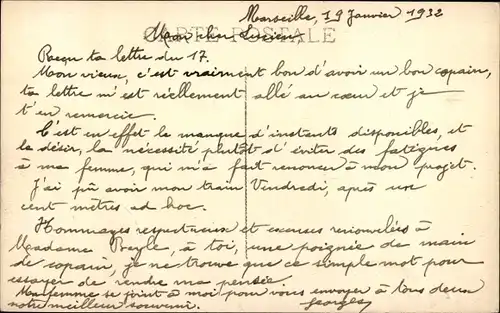 Marseille, 19 Janvier 1932
CARTE POSTALE
Mon cher Lucien,
Reçu ta lettre du 17.
Mon vieux, c'est vraiment bon d'avoir un bon copain,
ta lettre m'est réellement allé au cœur et je
t'en remercie.
C'est en effet le manque d'instants disponibles, et
le désir, la nécessité plutôt d'éviter des fatigues
à ma femme, qui m'a fait renoncer à mon projet.
J'ai pû avoir mon train Vendredi, après un
cent mètres ad hoc.
Hommages respectueux et excuses renouvelées à
Madame Beyle, à toi, une poignée de main
de copain, je ne trouve que ce simple mot pour
essayer de rendre ma pensée.
Ma femme se joint à moi pour vous envoyer à tous deux
notre meilleur souvenir.
Georges